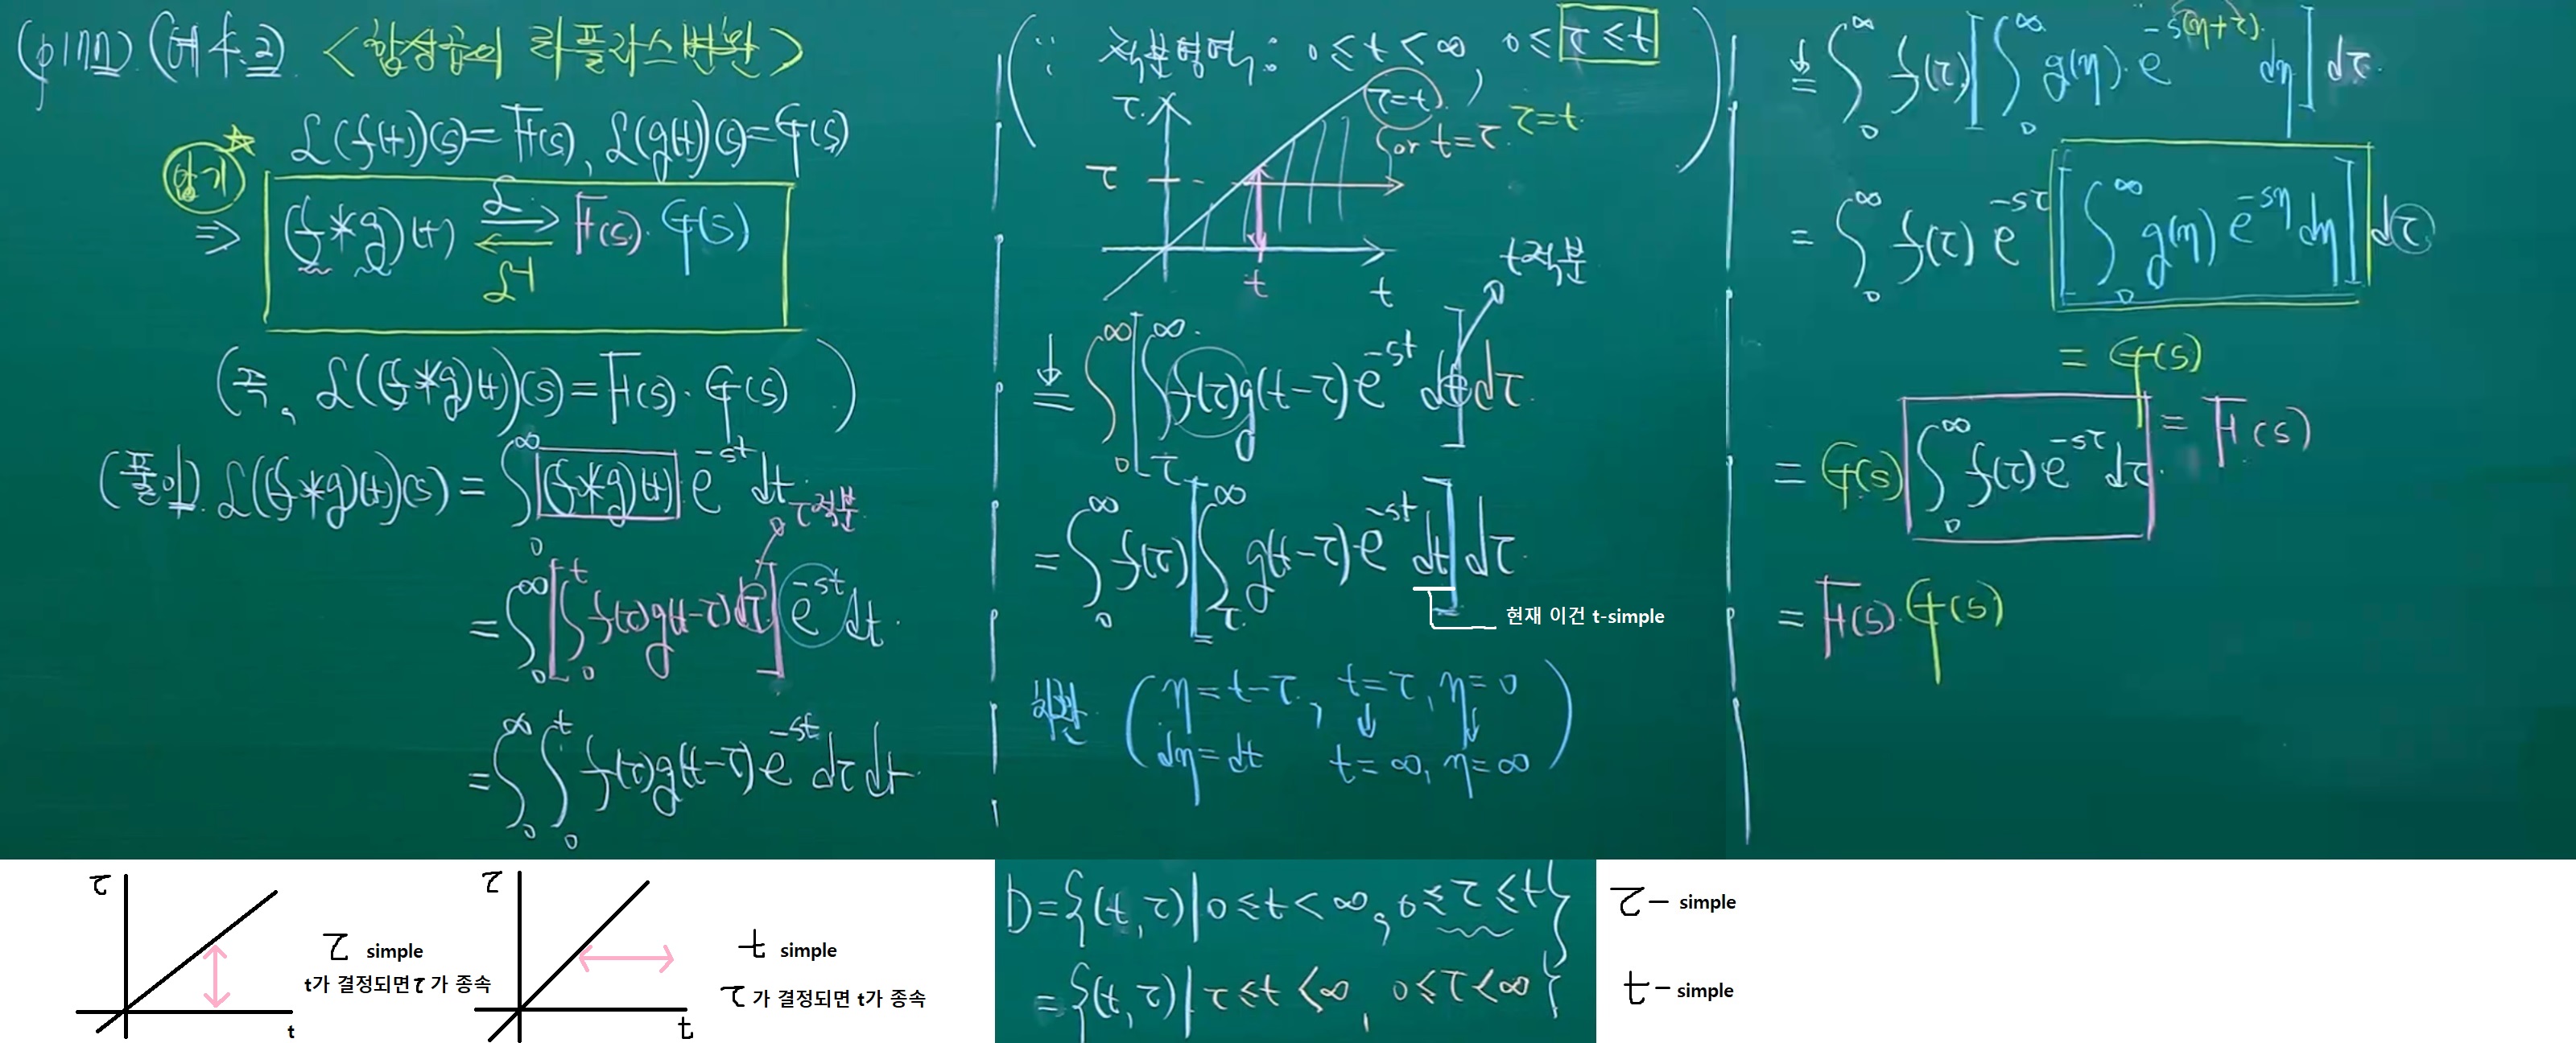 (예제.2) <합성곱의 라플라스변환>
ℒ(f(t))(s)=F(s), ℒ(g(t))(s)=G(s)
암기 ☆
⇒ (f*g)(t) ⇄ F(s)·G(s)
ℒ
ℒ⁻¹
(즉, ℒ((f*g)(t))(s)=F(s)·G(s))
(풀이) ℒ((f*g)(t))(s) = ∫₀^∞ (f*g)(t) e^{-st} dt
τ적분
= ∫₀^∞ [∫₀^t f(τ)g(t-τ)dτ] e^{-st} dt.
= ∫₀^∞ ∫₀^t f(τ)g(t-τ)e^{-st} dτ dt.
(∵ 적분영역: 0≤t<∞, 0≤τ≤t)
τ
τ=t
or t=τ
τ=t.
τ
t
t
t적분
↓
= ∫₀^∞ [∫_τ^∞ f(τ)g(t-τ)e^{-st} dt] dτ
= ∫₀^∞ f(τ) [∫_τ^∞ g(t-τ)·e^{-st} dt] dτ.
현재 이건 t-simple
치환 (η=t-τ, t=τ, η=0
dη=dt t=∞, η=∞)
↓
= ∫₀^∞ f(τ) [∫₀^∞ g(η)·e^{-s(η+τ)} dη] dτ.
= ∫₀^∞ f(τ) e^{-sτ} [∫₀^∞ g(η) e^{-sη} dη] dτ
= G(s)
= G(s) ∫₀^∞ f(τ)e^{-sτ} dτ = F(s)
= F(s)·G(s)
τ
t
τ simple
t가 결정되면 τ가 종속
τ
t
t simple
τ가 결정되면 t가 종속
D={(t,τ)|0≤t<∞, 0≤τ≤t}
={(t,τ)|τ≤t<∞, 0≤τ<∞}
τ- simple
t- simple